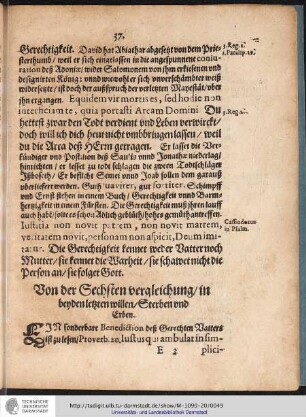 37.
Gerechtigkeit. David hat Abiathar abgesetzt von dem Prie-
sterthumb / weil er sich eingelassen in die angespunnene coniu-
ration deß Adoniæ, wider Salomonem von ihm erkiesenen und
designirten König: und wiewohl er sich unverschämbter weiß
widersetzte / ist doch der außspruch der verletzten Mayestät / uber
ihn ergangen. Equidem vir mortis es, sed hodie non
interficiam te, quia portasti Arcam Domini Du
hettest zwar den Todt verdient und Leben verwirckt /
doch will ich dich heut nicht umbbringen lassen / weil
du die Arca deß HErrn getragen. Er lasset die Ver-
kündiger und Posthauen deß Sauls unnd Jonathæ niederlag /
hinrichten / er lasset zu todt schlagen die zween Todtschläger
Ißboseth / Er befiehlt das Semei unnd Joab sollen dem garauß
uberliefert werden. Gutt suaviter, gut fortiter. Schimpff
und Ernst stehen in einem Buch / Gerechtigkeit unnd Barm-
hertzigkeit in einem Fürsten. Die Gerechtigkeit muß ihren lauff
auch habē / solte es schon Adelich geblüth / hohes gemüth antreffen.
Iustitia non novit patrem, non novit matrem,
veritatem novit, personam non aspicit, Deum imi-
tatur. Die Gerechtigkeit kennet weder Vatter noch
Mutter / sie kennet die Warheit / sie schawet nicht die
Person an / sie folget Gott.
1. Reg. 2.
1. Paralip. 29.
3. Reg. 2.
Cassiodorus
in Psalm.
Von der Sechsten vergleichung / in
beyden letzten willen / Sterben und
Erben.
EIN sonderbare Benediction deß Gerechten Vatters
ist zu lesen / Proverb. 20. Iustus qui ambulat in sim-
E plici-
TECHNISCHE
UNIVERSITÄT
DARMSTADT
http://tudigit.ulb.tu-darmstadt.de/show/W-1090-20/0049
Universitäts- und Landesbibliothek Darmstadt